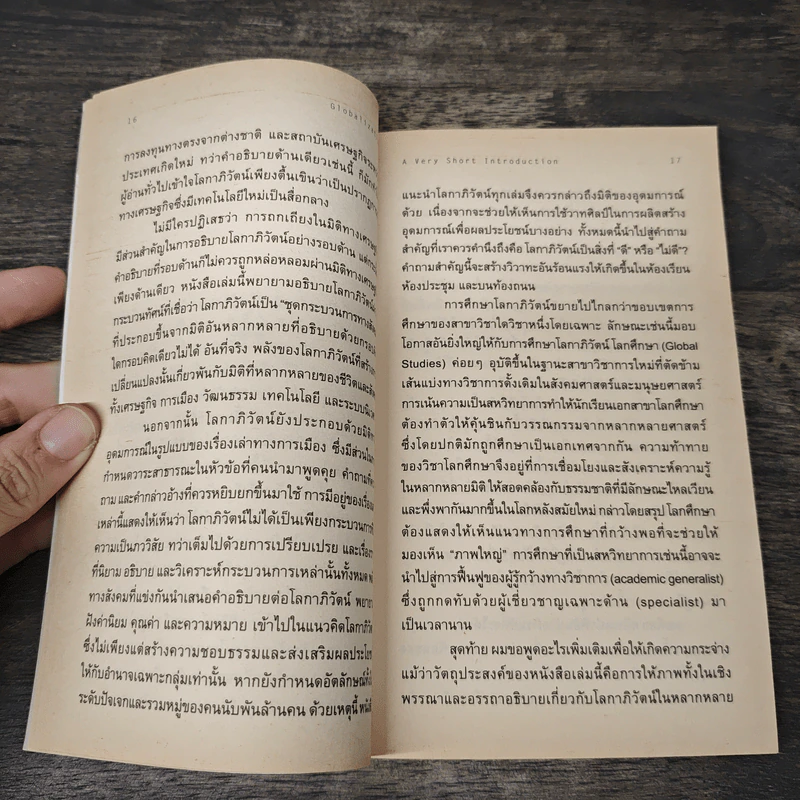 16
การลงทุนทางตรงจากต่างชาติ และสถาบันเศรษฐกิจระหว่าง
ประเทศเกิดใหม่ ทว่าคำอธิบายด้านเดียวเช่นนี้
ผู้อ่านทั่วไปเข้าใจโลกาภิวัตน์เพียงตื้นเขินว่าเป็นปรากฏการณ์
ทางเศรษฐกิจซึ่งมีเทคโนโลยีใหม่เป็นสื่อกลาง
ไม่มีใครปฏิเสธว่า การถกเถียงในมิติทางเศรษฐกิจ
มีส่วนสำคัญในการอธิบายโลกาภิวัตน์อย่างรอบด้าน
คำอธิบายที่รอบด้านก็ไม่ควรถูกหล่อหลอมผ่านมิติทางเศรษฐกิจ
เพียงด้านเดียว หนังสือเล่มนี้พยายามอธิบายโลกาภิวัตน์
กระบวนทัศน์ที่เชื่อว่า โลกาภิวัตน์เป็น "ชุดกระบวนการทางสังคม
ที่ประกอบขึ้นจากมิติอันหลากหลายที่อธิบายด้วยกรอบ
ใดกรอบคิดเดียวไม่ได้ อันที่จริง พลังของโลกาภิวัตน์ที่สร้าง
เปลี่ยนแปลงนั้นเกี่ยวพันกับมิติที่หลากหลายของชีวิตและสังคม
ทั้งเศรษฐกิจ การเมือง วัฒนธรรม เทคโนโลยี และระบบนิเวศ
นอกจากนั้น โลกาภิวัตน์ยังประกอบด้วยมิติทาง
อุดมการณ์ในรูปแบบของเรื่องเล่าทางการเมือง ซึ่งมีส่วนใน
กำหนดวาระสาธารณะในหัวข้อที่คนนำมาพูดคุย คำถามที่
ถาม และคำกล่าวอ้างที่ควรหยิบยกขึ้นมาใช้ การมีอยู่ของเรื่องเล่า
เหล่านี้แสดงให้เห็นว่า โลกาภิวัตน์ไม่ได้เป็นเพียงกระบวนการ
ความเป็นภววิสัย ทว่าเต็มไปด้วยการเปรียบเปรย และเรื่อง
ที่นิยาม อธิบาย และวิเคราะห์กระบวนการเหล่านั้นทั้งหมด
ทางสังคมที่แข่งกันนำเสนอคำอธิบายต่อโลกาภิวัตน์
ฝังค่านิยม คุณค่า และความหมาย เข้าไปในแนวคิดโลกาภิวัตน์
ซึ่งไม่เพียงแต่สร้างความชอบธรรมและส่งเสริมผลประโยชน์
ให้กับอำนาจเฉพาะกลุ่มเท่านั้น หากยังกำหนดอัตลักษณ์ทั้งใน
ระดับปัจเจกและรวมหมู่ของคนนับพันล้านคน ด้วยเหตุนี้
A Very Short Introduction 17
แนะนำโลกาภิวัตน์ทุกเล่มจึงควรกล่าวถึงมิติของอุดมการณ์
ด้วย เนื่องจากจะช่วยให้เห็นการใช้วาทศิลป์ในการผลิตสร้าง
อุดมการณ์เพื่อผลประโยชน์บางอย่าง ทั้งหมดนี้นำไปสู่คำถาม
สำคัญที่เราควรคำนึงถึงคือ โลกาภิวัตน์เป็นสิ่งที่ "ดี" หรือ "ไม่ดี"?
คำถามสำคัญนี้จะสร้างวิวาทะอันร้อนแรงให้เกิดขึ้นในห้องเรียน
ห้องประชุม และบนท้องถนน
การศึกษาโลกาภิวัตน์ขยายไปไกลกว่าขอบเขตการ
ศึกษาของสาขาวิชาใดวิชาหนึ่งโดยเฉพาะ ลักษณะเช่นนี้มอบ
โอกาสอันยิ่งใหญ่ให้กับการศึกษาโลกาภิวัตน์ โลกศึกษา (Global
Studies) ค่อยๆ อุบัติขึ้นในฐานะสาขาวิชาการใหม่ที่ตัดข้าม
เส้นแบ่งทางวิชาการดั้งเดิมในสังคมศาสตร์และมนุษยศาสตร์
การเน้นความเป็นสหวิทยาการทำให้นักเรียนเอกสาขาโลกศึกษา
ต้องทำตัวให้คุ้นชินกับวรรณกรรมจากหลากหลายศาสตร์
ซึ่งโดยปกติมักถูกศึกษาเป็นเอกเทศจากกัน ความท้าทาย
ของวิชาโลกศึกษาจึงอยู่ที่การเชื่อมโยงและสังเคราะห์ความรู้
ในหลากหลายมิติ ให้สอดคล้องกับธรรมชาติที่มีลักษณะไหลเวียน
และพึ่งพากันมากขึ้นในโลกหลังสมัยใหม่ กล่าวโดยสรุป โลกศึกษา
ต้องแสดงให้เห็นแนวทางการศึกษาที่กว้างพอที่จะช่วยให้
มองเห็น "ภาพใหญ่" การศึกษาที่เป็นสหวิทยาการเช่นนี้อาจจะ
นำไปสู่การฟื้นฟูของผู้รู้กว้างทางวิชาการ (academic generalist)
ซึ่งถูกกดทับด้วยผู้เชี่ยวชาญเฉพาะด้าน (specialist) มา
เป็นเวลานาน
สุดท้าย ผมขอพูดอะไรเพิ่มเติมเพื่อให้เกิดความกระจ่าง
แม้ว่าวัตถุประสงค์ของหนังสือเล่มนี้คือการให้ภาพทั้งในเชิง
พรรณาและอรรถาอธิบายเกี่ยวกับโลกาภิวัตน์ในหลากหลาย